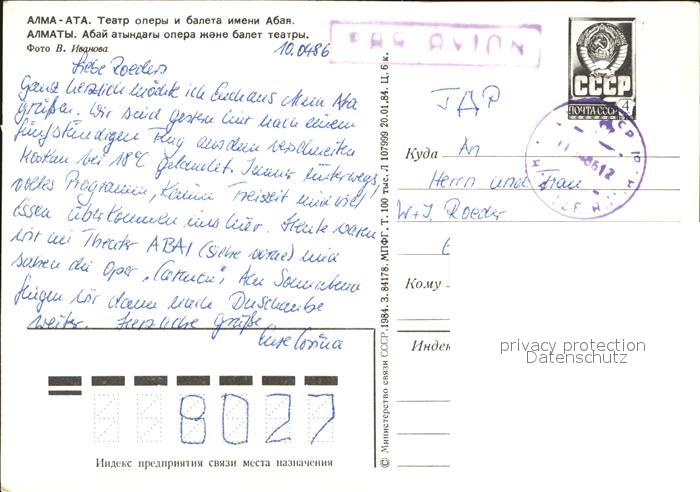 АЛМА-АТА. Театр оперы и балета имени Абая.
АЛМАТЫ. Абай атындағы опера және балет театры.
Фото В. Иванова
10.0486
Liebe Roeders
Ganz herzlich möchte ich Euch aus Alma Ata
grüßen. Wir sind gestern hier nach einem
fünfstündigen Flug aus dem verschneiten
Moskau bei 18°C gelandet. Immer unterwegs,
volles Programm, kaum Freizeit und viel
Essen überkommen uns hier. Heute waren
wir im Theater ABAI (siehe vorne) und
sahen die Oper „Carmen“. Am Sonnabend
fliegen wir dann nach Duschanbe
weiter. Herzliche Grüße
Eure Corina
8027
Индекс предприятия связи места назначения
© Министерство связи СССР. 1984. З. 84178. МПФГ. Т. 100 тыс. Л 107999 20.01.84. Ц. 6 к.
PAR AVION
СССР
ПОЧТА СССР
4
ГДР
Куда
An
Herrn und Frau
W+I. Roeder
Кому
Индекс
privacy protection
Datenschutz